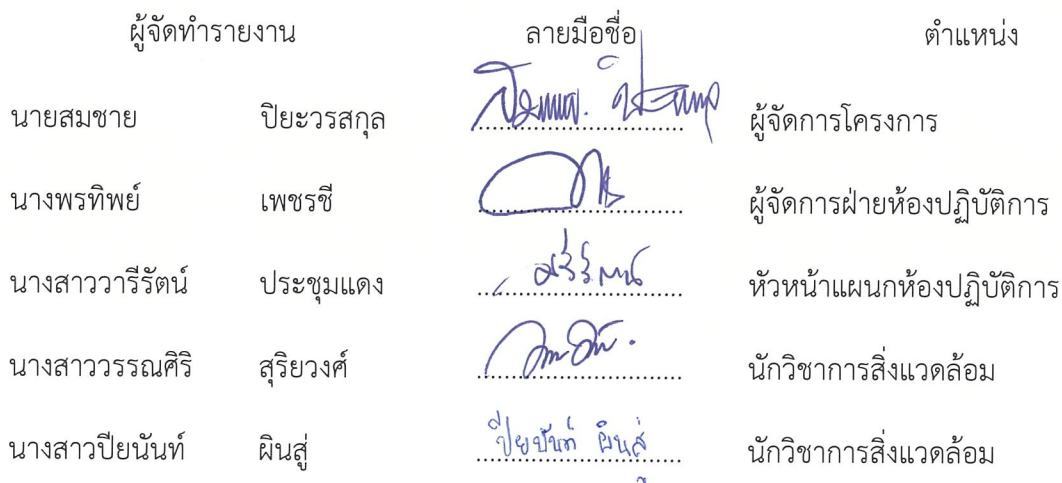 ผู้จัดทำรายงาน ลายมือชื่อ ตำแหน่ง
นายสมชาย ปิยะวรสกุล ผู้จัดการโครงการ
นางพรทิพย์ เพชรชี ผู้จัดการฝ่ายห้องปฏิบัติการ
นางสาววารีรัตน์ ประชุมแดง หัวหน้าแผนกห้องปฏิบัติการ
นางสาววรรณศิริ สุริยวงศ์ นักวิชาการสิ่งแวดล้อม
นางสาวปิยนันท์ ผินสู่ ปิยนันท์ ผินสู่ นักวิชาการสิ่งแวดล้อม